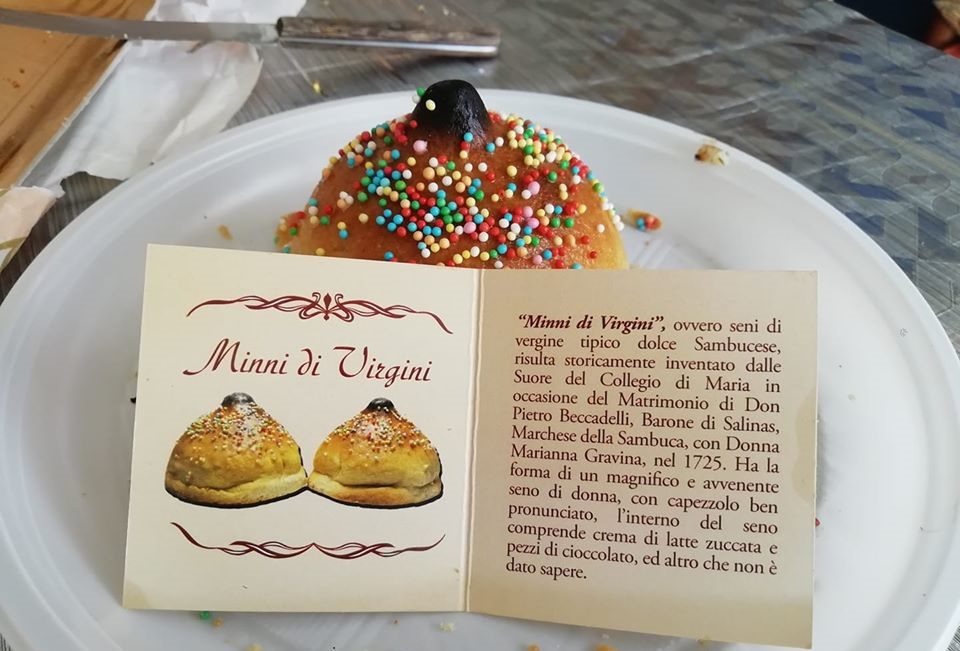 Minni di Virgini
“Minni di Virgini”, ovvero seni di
vergine tipico dolce Sambucese,
risulta storicamente inventato dalle
Suore del Collegio di Maria in
occasione del Matrimonio di Don
Pietro Beccadelli, Barone di Salinas,
Marchese della Sambuca, con Donna
Marianna Gravina, nel 1725. Ha la
forma di un magnifico e avvenente
seno di donna, con capezzolo ben
pronunciato, l’interno del seno
comprende crema di latte zuccata e
pezzi di cioccolato, ed altro che non è
dato sapere.